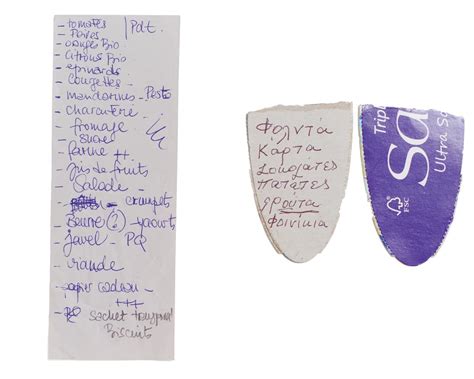 - tomates | Pdt.
- Poires
- oranges Bio
- Citrons Bio
- epinards.
- Courgettes -
- mandarines - Pesto
- charcuterie
- fromage
- sucre
- farine ++
- Jus de fruits
- Salade
- crumpets
- Beurre ② - yaourts
- Javel - PQ
- viande
- papier cadeau -
+++
- sachet
Biscuits
Φολντά
Κάρτα
Σοκολάτες
Πατάτες
Φρούτα
Φοινίκια
Tripl
sa
Ultra S
FSC